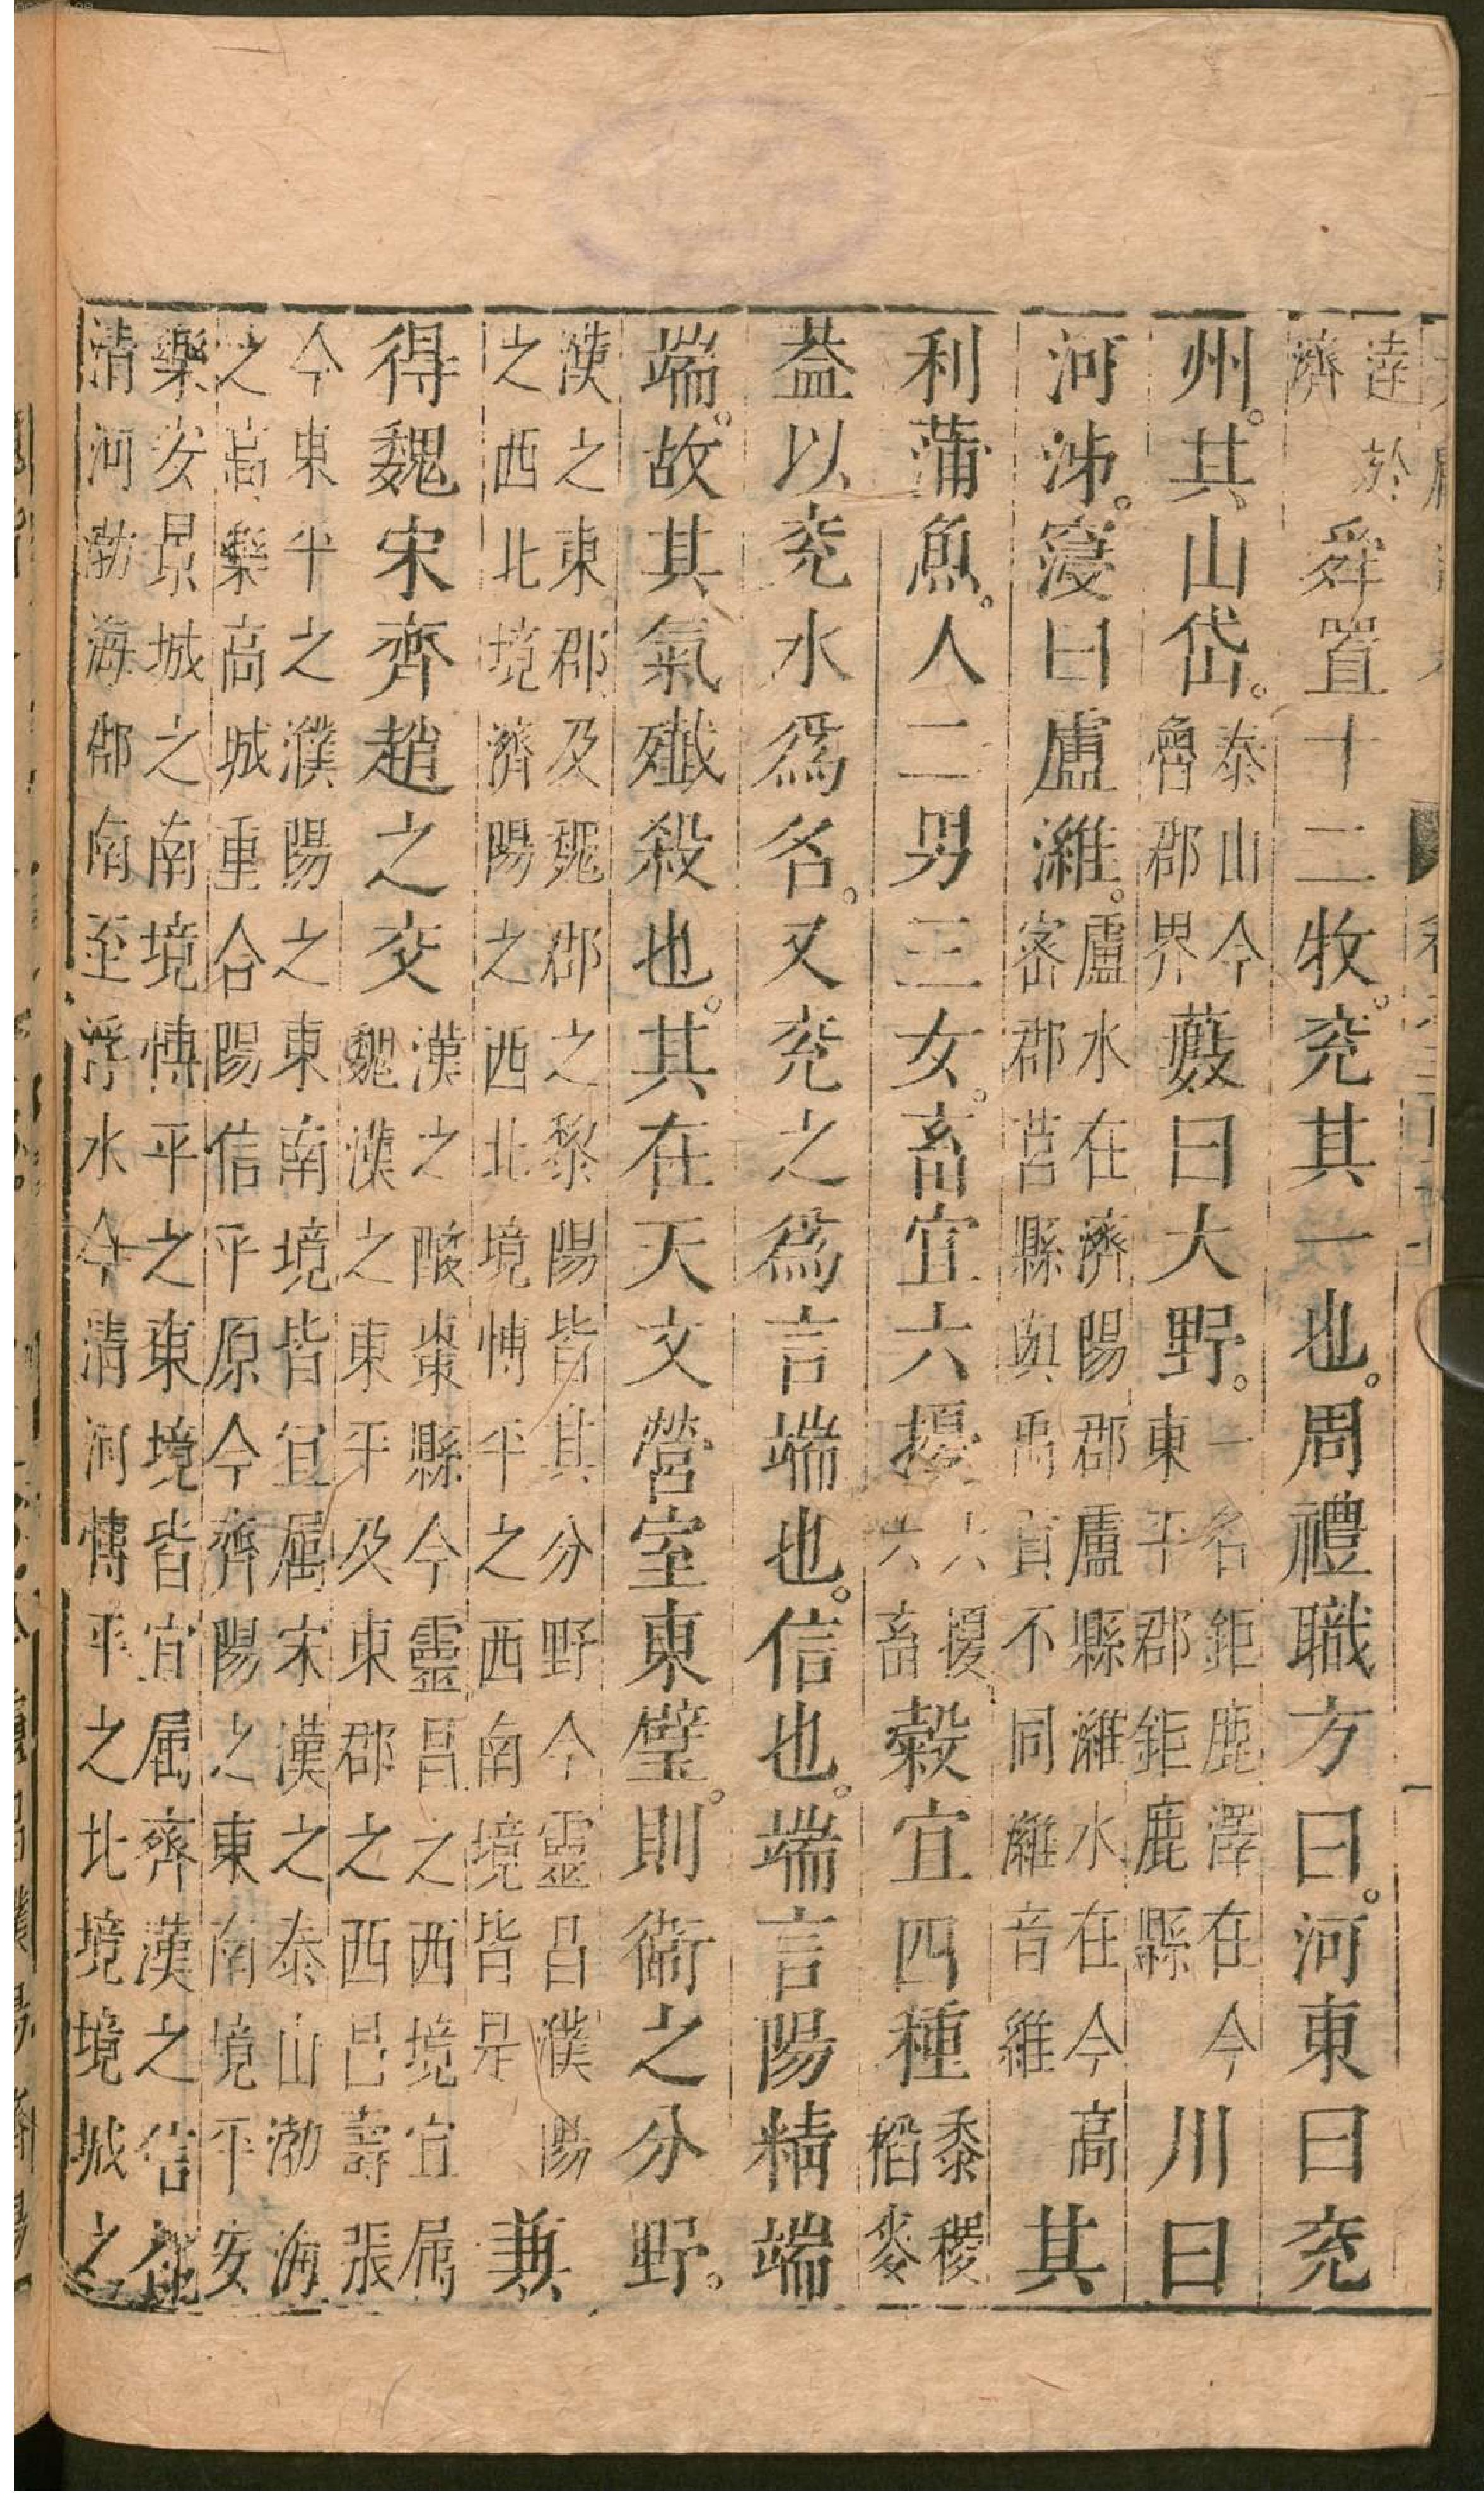 達於濟舜置十二牧。兖其一也。周禮職方曰。河東曰兖
州。其山岱。泰山今魯郡界藪曰大野。一名鉅鹿澤在今東平郡鉅鹿縣川曰
河泲。寖曰盧濰。盧水在濟陽郡盧縣濰水在今高密郡莒縣與禹貢不同濰音維其
利蒲魚。人二男三女。畜宜六擾六擾六畜穀宜四種黍稷稻麥
葢以兖水爲名。又兖之爲言端也。信也。端言陽精端
端。故其氣殲殺也。其在天文營室東壁。則衛之分野。
漢之東郡及魏郡之黎陽皆其分野今靈昌濮陽之西北境濟陽之西北境博平之西南境皆是兼
得魏宋齊趙之交漢之酸棗縣今靈昌之西境宜屬魏漢之東平及東郡之西邑壽張
今東平之濮陽之東南境皆宜屬宋漢之泰山渤海之高樂高城重合陽信平原今齊陽之東南境平安
樂安景城之南境博平之東境皆宜屬齊漢之信㐲清河渤海郡南至浮水今清河博平之北境境城之